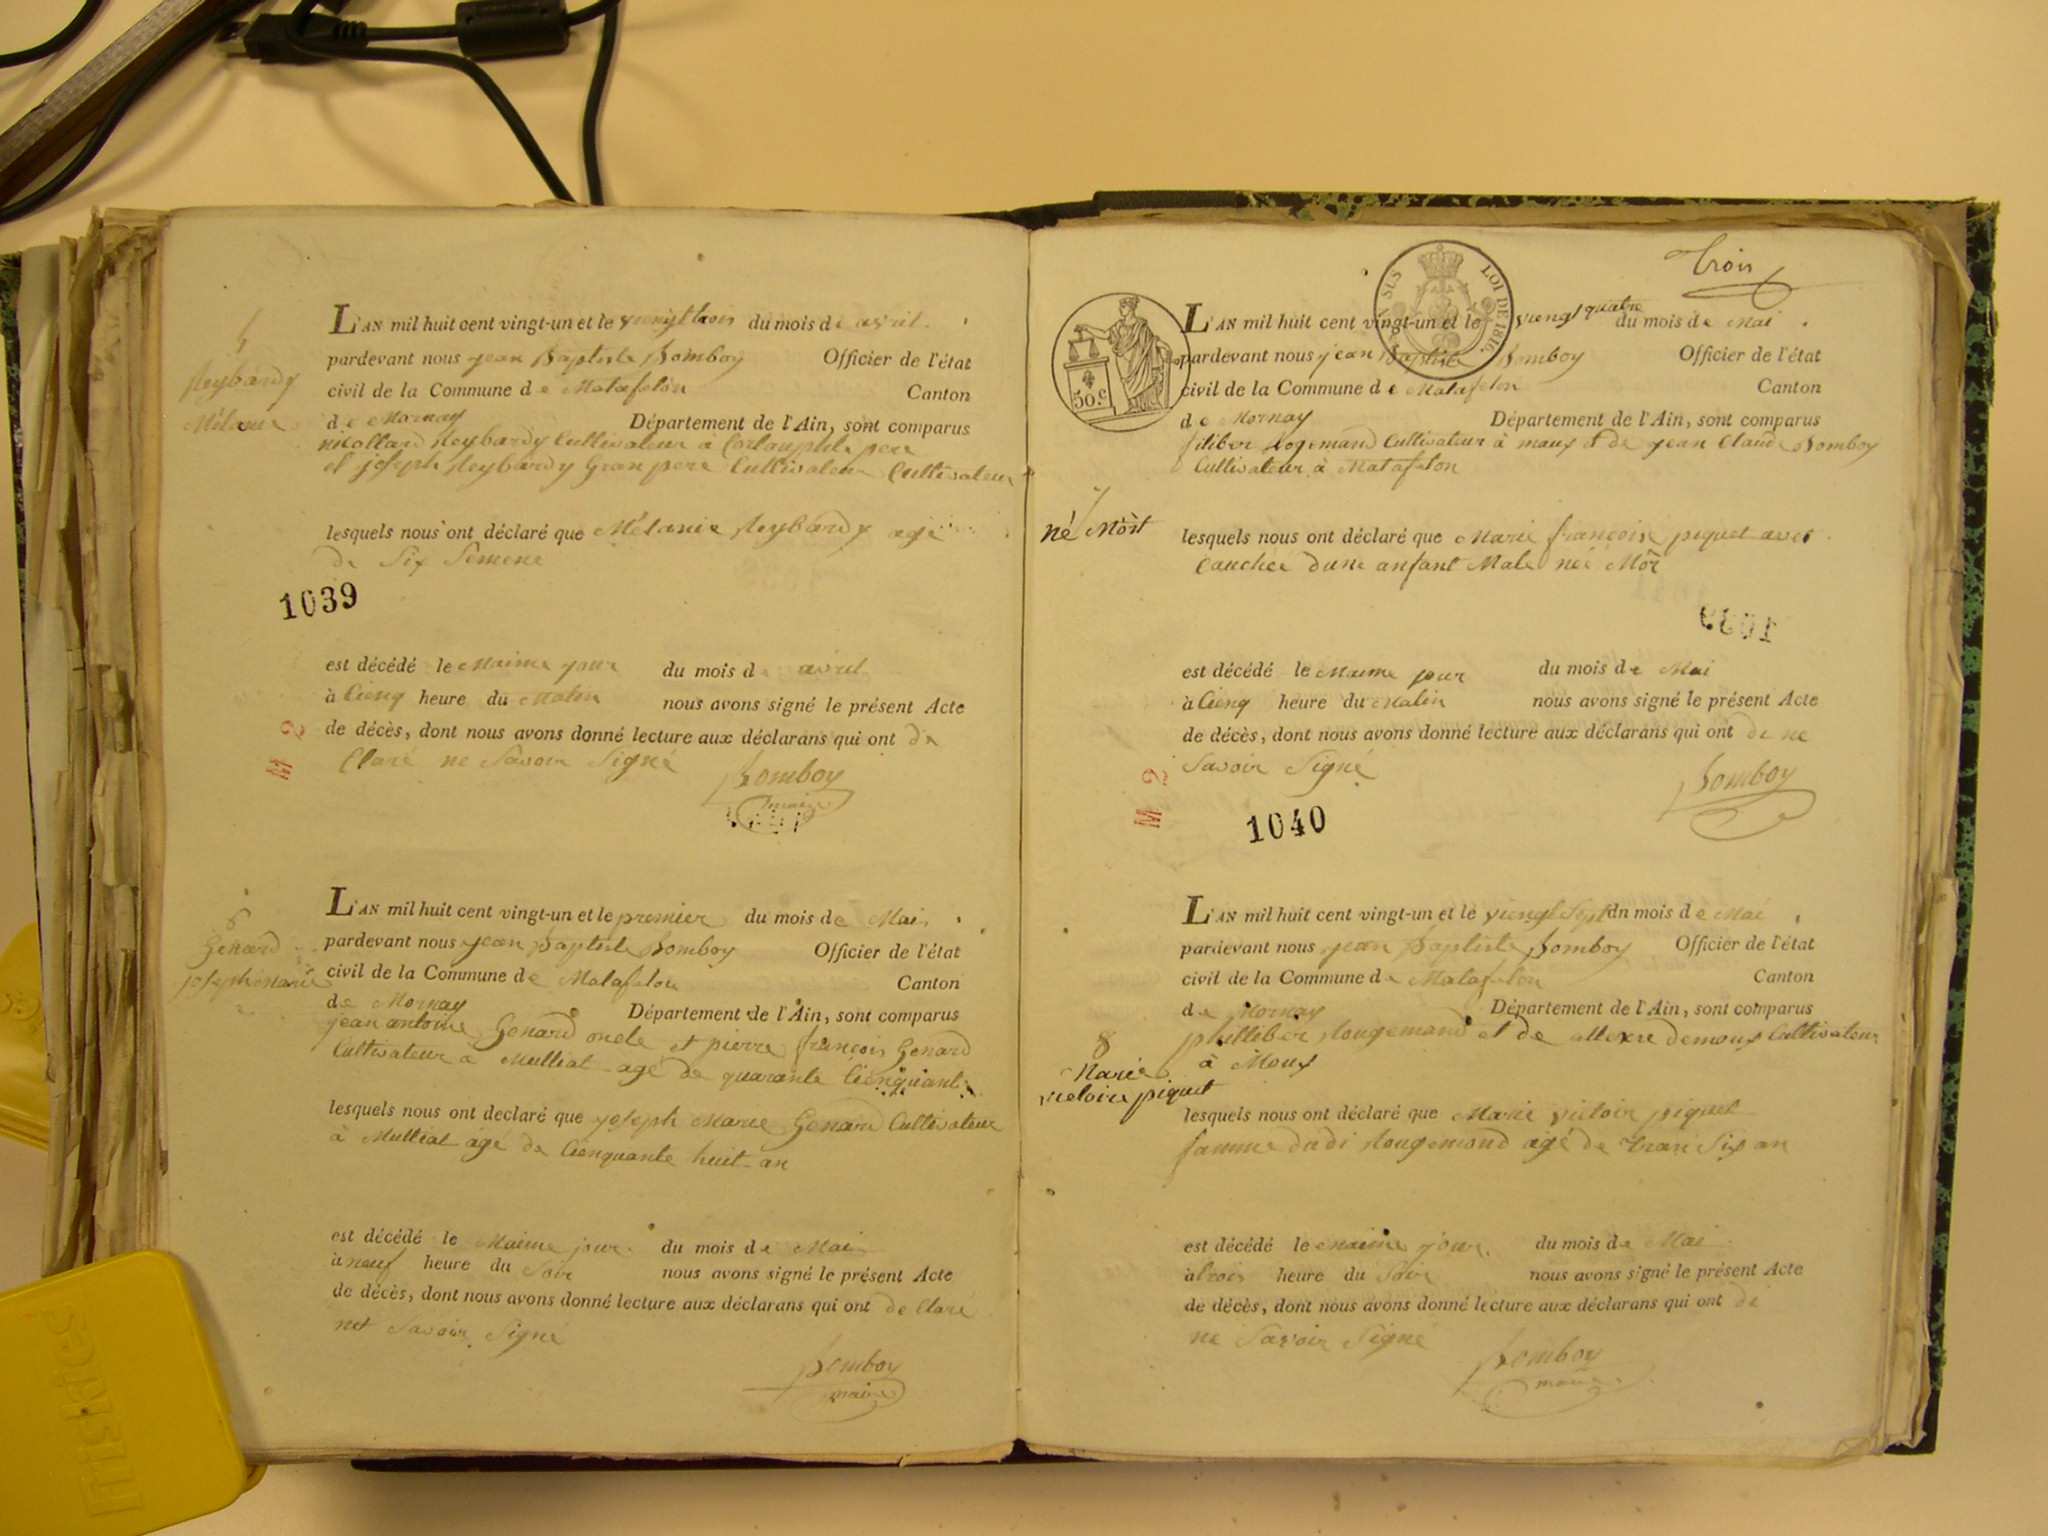 5
Reybardy
Mélanie
L'AN mil huit cent vingt-un et le viengt trois du mois de avril
pardevant nous jean Baptiste Bomboy Officier de l'état
civil de la Commune de Matafelon Canton
de Mornay Département de l'Ain, sont comparus
nicollard Reybardy Cultivateur à pere
et joseph Reybardy Gran pere Cultivateur Cultivateur
lesquels nous ont déclaré que Mélanie Reybardy agé
de Six Semene
1039
est décédé le Maime jour du mois de avril
à Cienq heure du Matin nous avons signé le présent Acte
de décès, dont nous avons donné lecture aux déclarans qui ont de
Claré ne Savoir Signé
Bomboy
maire
M 2
6
Genard
joseph Marie
L'AN mil huit cent vingt-un et le premier du mois de Mai
pardevant nous jean Baptiste Bomboy Officier de l'état
civil de la Commune de Matafelon Canton
de Mornay Département de l'Ain, sont comparus
jean antoine Genard oncle et pierre françois Genard
Cultivateur à Mulliat agé de quarante Cienquante
lesquels nous ont declaré que joseph Marie Genard Cultivateur
à Mulliat agé de Cienquante huit an
est décédé le Maime jour du mois de Mai
à neuf heure du Soir nous avons signé le présent Acte
de décès, dont nous avons donné lecture aux déclarans qui ont de Claré
net Savoir Signé
Bomboy
maire
Trois
SLS LOI DE 1816.
50.c
7
né Mort
L'AN mil huit cent vingt-un et le viengt quatre du mois de Mai
pardevant nous jean Baptiste Bomboy Officier de l'état
civil de la Commune de Matafelon Canton
de Mornay Département de l'Ain, sont comparus
filiber Rogemand Cultivateur à moux & de jean Claude Bomboy
Cultivateur à Matafelon
lesquels nous ont déclaré que Marie françoise piquet avec
Cauchée dune anfant Male né Mor
1039
est décédé le Maime jour du mois de Mai
à Cienq heure du Matin nous avons signé le présent Acte
de décès, dont nous avons donné lecture aux déclarans qui ont di ne
Savoir Signé
Bomboy
M 2
1040
8
Marie
victoire piquet
L'AN mil huit cent vingt-un et le viengt Sept du mois de Mai
pardevant nous jean Baptiste Bomboy Officier de l'état
civil de la Commune de Matafelon Canton
de Mornay Département de l'Ain, sont comparus
philliber Rougemand et de allexre demoux Cultivateur
à Moux
lesquels nous ont déclaré que Marie victoir piquet
famme dudi Rougemond agé de tran Six an
est décédé le maime jour. du mois de Mai
à trois heure du Soir nous avons signé le présent Acte
de décès, dont nous avons donné lecture aux déclarans qui ont di
ne Savoir Signé
Bomboy
maire